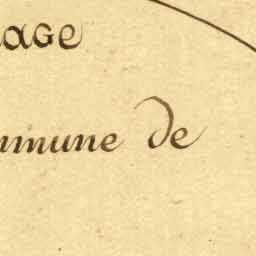 age
mmune de